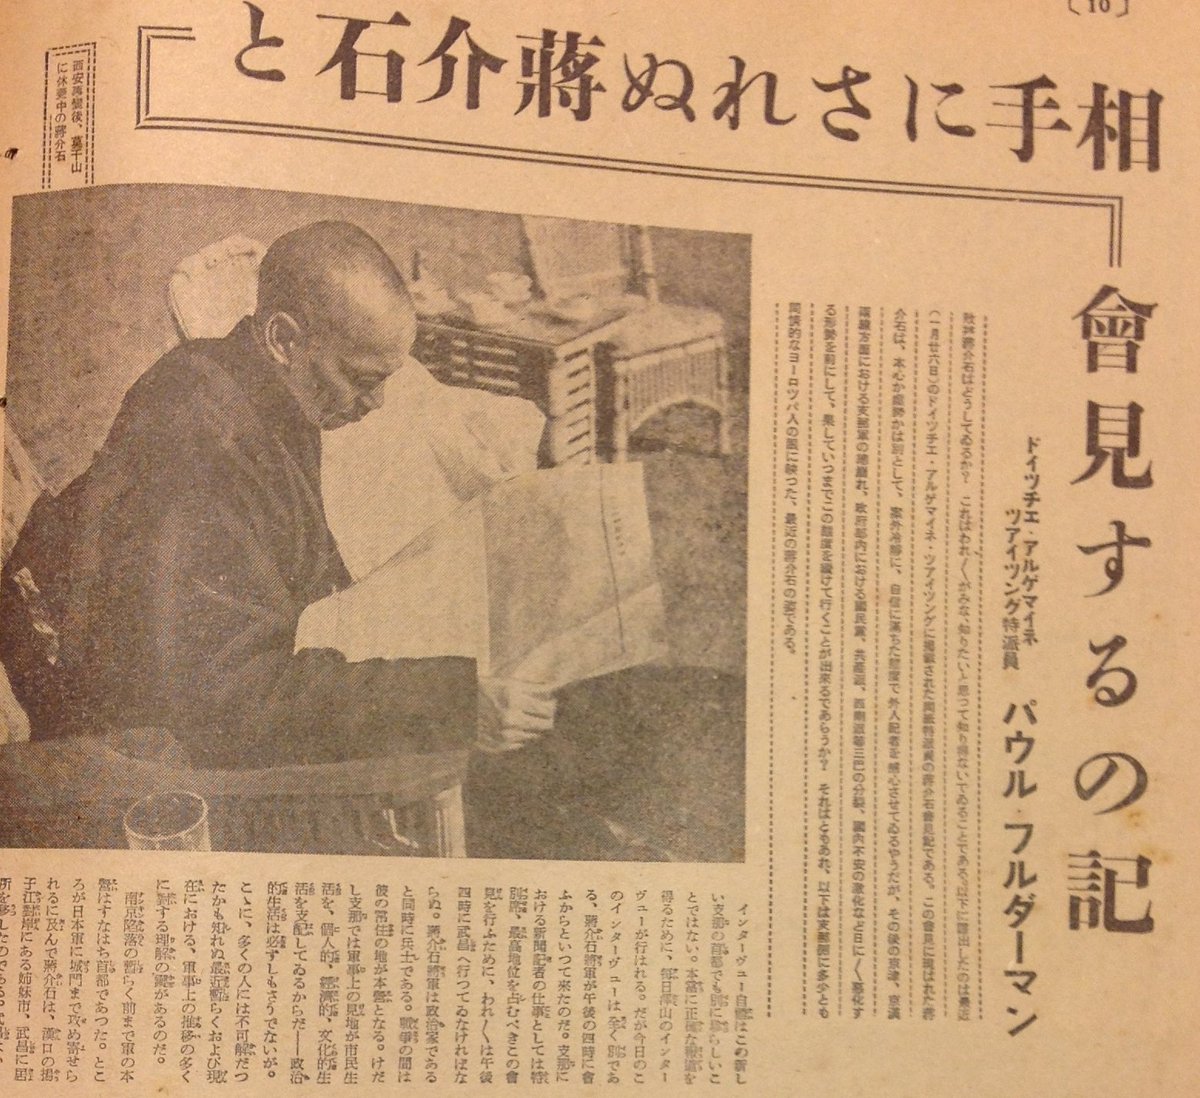 〔10〕
相手にされぬ蔣介石と
會見するの記
ドイツチエ・アルゲマイネ
ツアイツング特派員
パウル・フルダーマン
蔣介石はどうしてゐるか? これはわれ〳〵がみな知りたいと思つて知り得ないでゐることである 以下に譯出したのは最近
(一月廿六日)のドイツチエ・アルゲマイネ・ツアイツングに掲載された同紙特派員の蔣介石會見記である。この會見に現はれた蔣
介石は、本心か虛勢かは別として、案外冷靜に、自信に滿ちた態度で外人記者を感心させてゐるやうだが、その後の京漢
兩線方面における支那軍の總崩れ、政府部内における國民黨、共産黨、西南派等三巴の分裂、國内不安の激化など日に〳〵惡化す
る形勢を前にして、果していつまでこの態度を續けて行くことが出來るであらうか? それはともあれ、以下は支那側に多少とも
同情的なヨーロツパ人の眼に映つた、最近の蔣介石の姿である。
西安事變後、莫干山
に休養中の蔣介石
インターヴユー自體はこの新し
い支那の首都でも別に珍らしいこ
とではない。本當に正確な報道を
得るために、毎日澤山のインター
ヴユーが行はれる。だが今日のこ
のインターヴユーは全く別であ
る、蔣介石將軍が午後の四時に會
ふからといつて來たのだ。支那に
おける新聞記者の仕事としては特
別席、最高地位を占むべきこの會
見を行ふために、われ〳〵は午後
四時に武昌へ行つてゐなければな
らぬ。蔣介石將軍は政治家である
と同時に兵士である。戰爭の間は
彼の常住の地が本營となる。けだ
し支那では軍事上の見地が市民生
活を、個人的、經濟的、文化的生
活を支配してゐるからだ——政治
的生活は必ずしもさうでないが。
こゝに、多くの人には不可解だつ
たかも知れぬ最近暫らくおよび現
在における、軍事上の推移の多く
に對する理解の鍵があるのだ。
南京陷落の暫らく前まで軍の本
營はすなはち首都であつた。とこ
ろが日本軍に城門まで攻め寄せら
れるに及んで蔣介石は、漢口の揚
子江對岸にある姉妹市、武昌に居
所を移したのである。